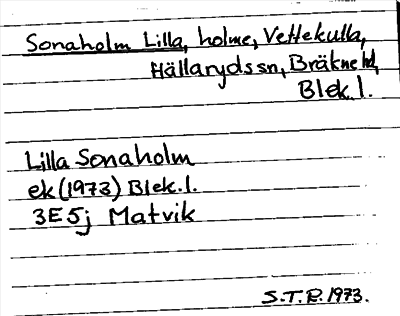 Sonaholm Lilla, holme, Vettekulla,
Hällarydssn, Bräkne hd,
Blek. l.
Lilla Sonaholm
ek (1973) Blek. l.
3E5j Matvik
S.T.R. 1973.